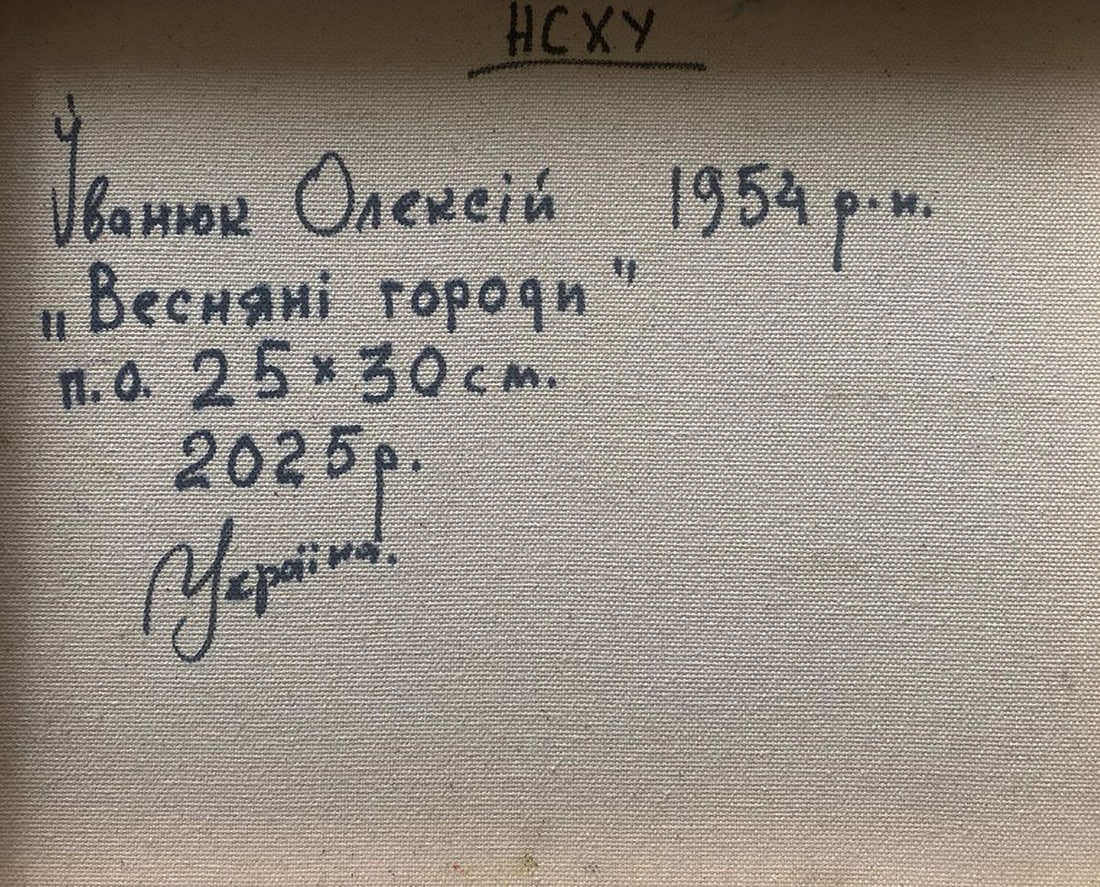 НСХУ
Іванюк Олексій 1954 р.н.
„Весняні городи"
п.о. 25×30 см.
2025р.
Україна.